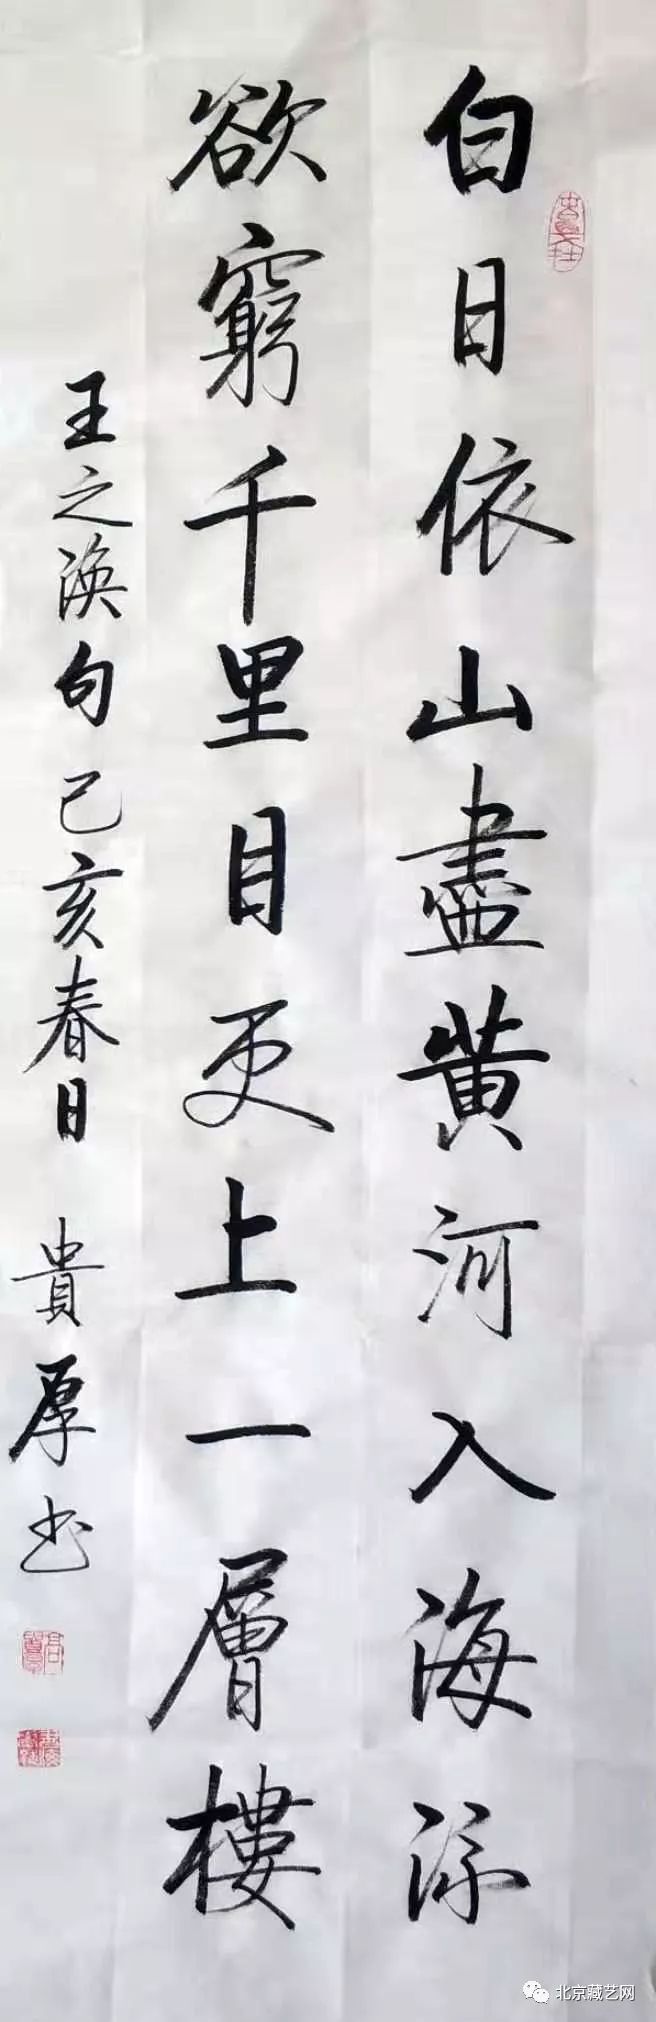 白日依山盡黄河入海流
欲窮千里目更上一層樓
王之渙句 己亥春日 貴厚书
北京藏艺网